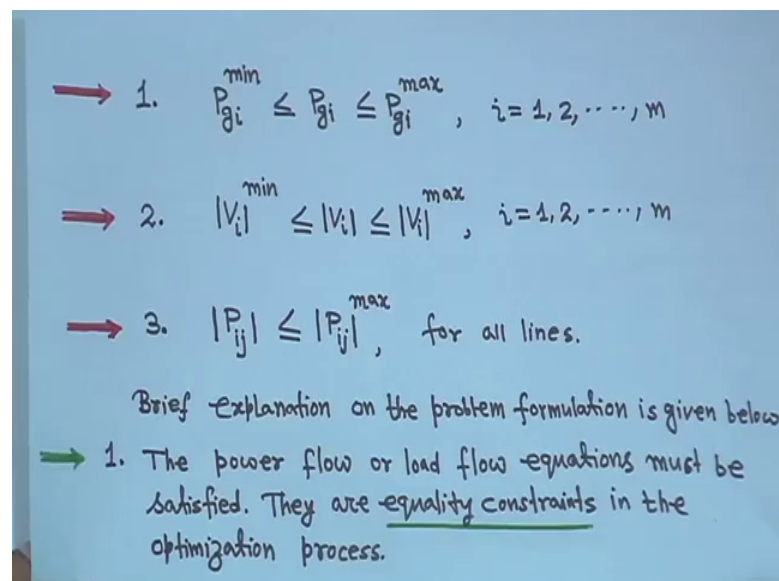 1. P_{gi}^{min} ≤ P_{gi} ≤ P_{gi}^{max}, i=1,2,....,m
2. |V_i|^{min} ≤ |V_i| ≤ |V_i|^{max}, i=1,2,....,m
3. |P_{ij}| ≤ |P_{ij}|^{max}, for all lines.
Brief explanation on the problem formulation is given below
1. The power flow or load flow equations must be
satisfied. They are equality constraints in the
optimization process.